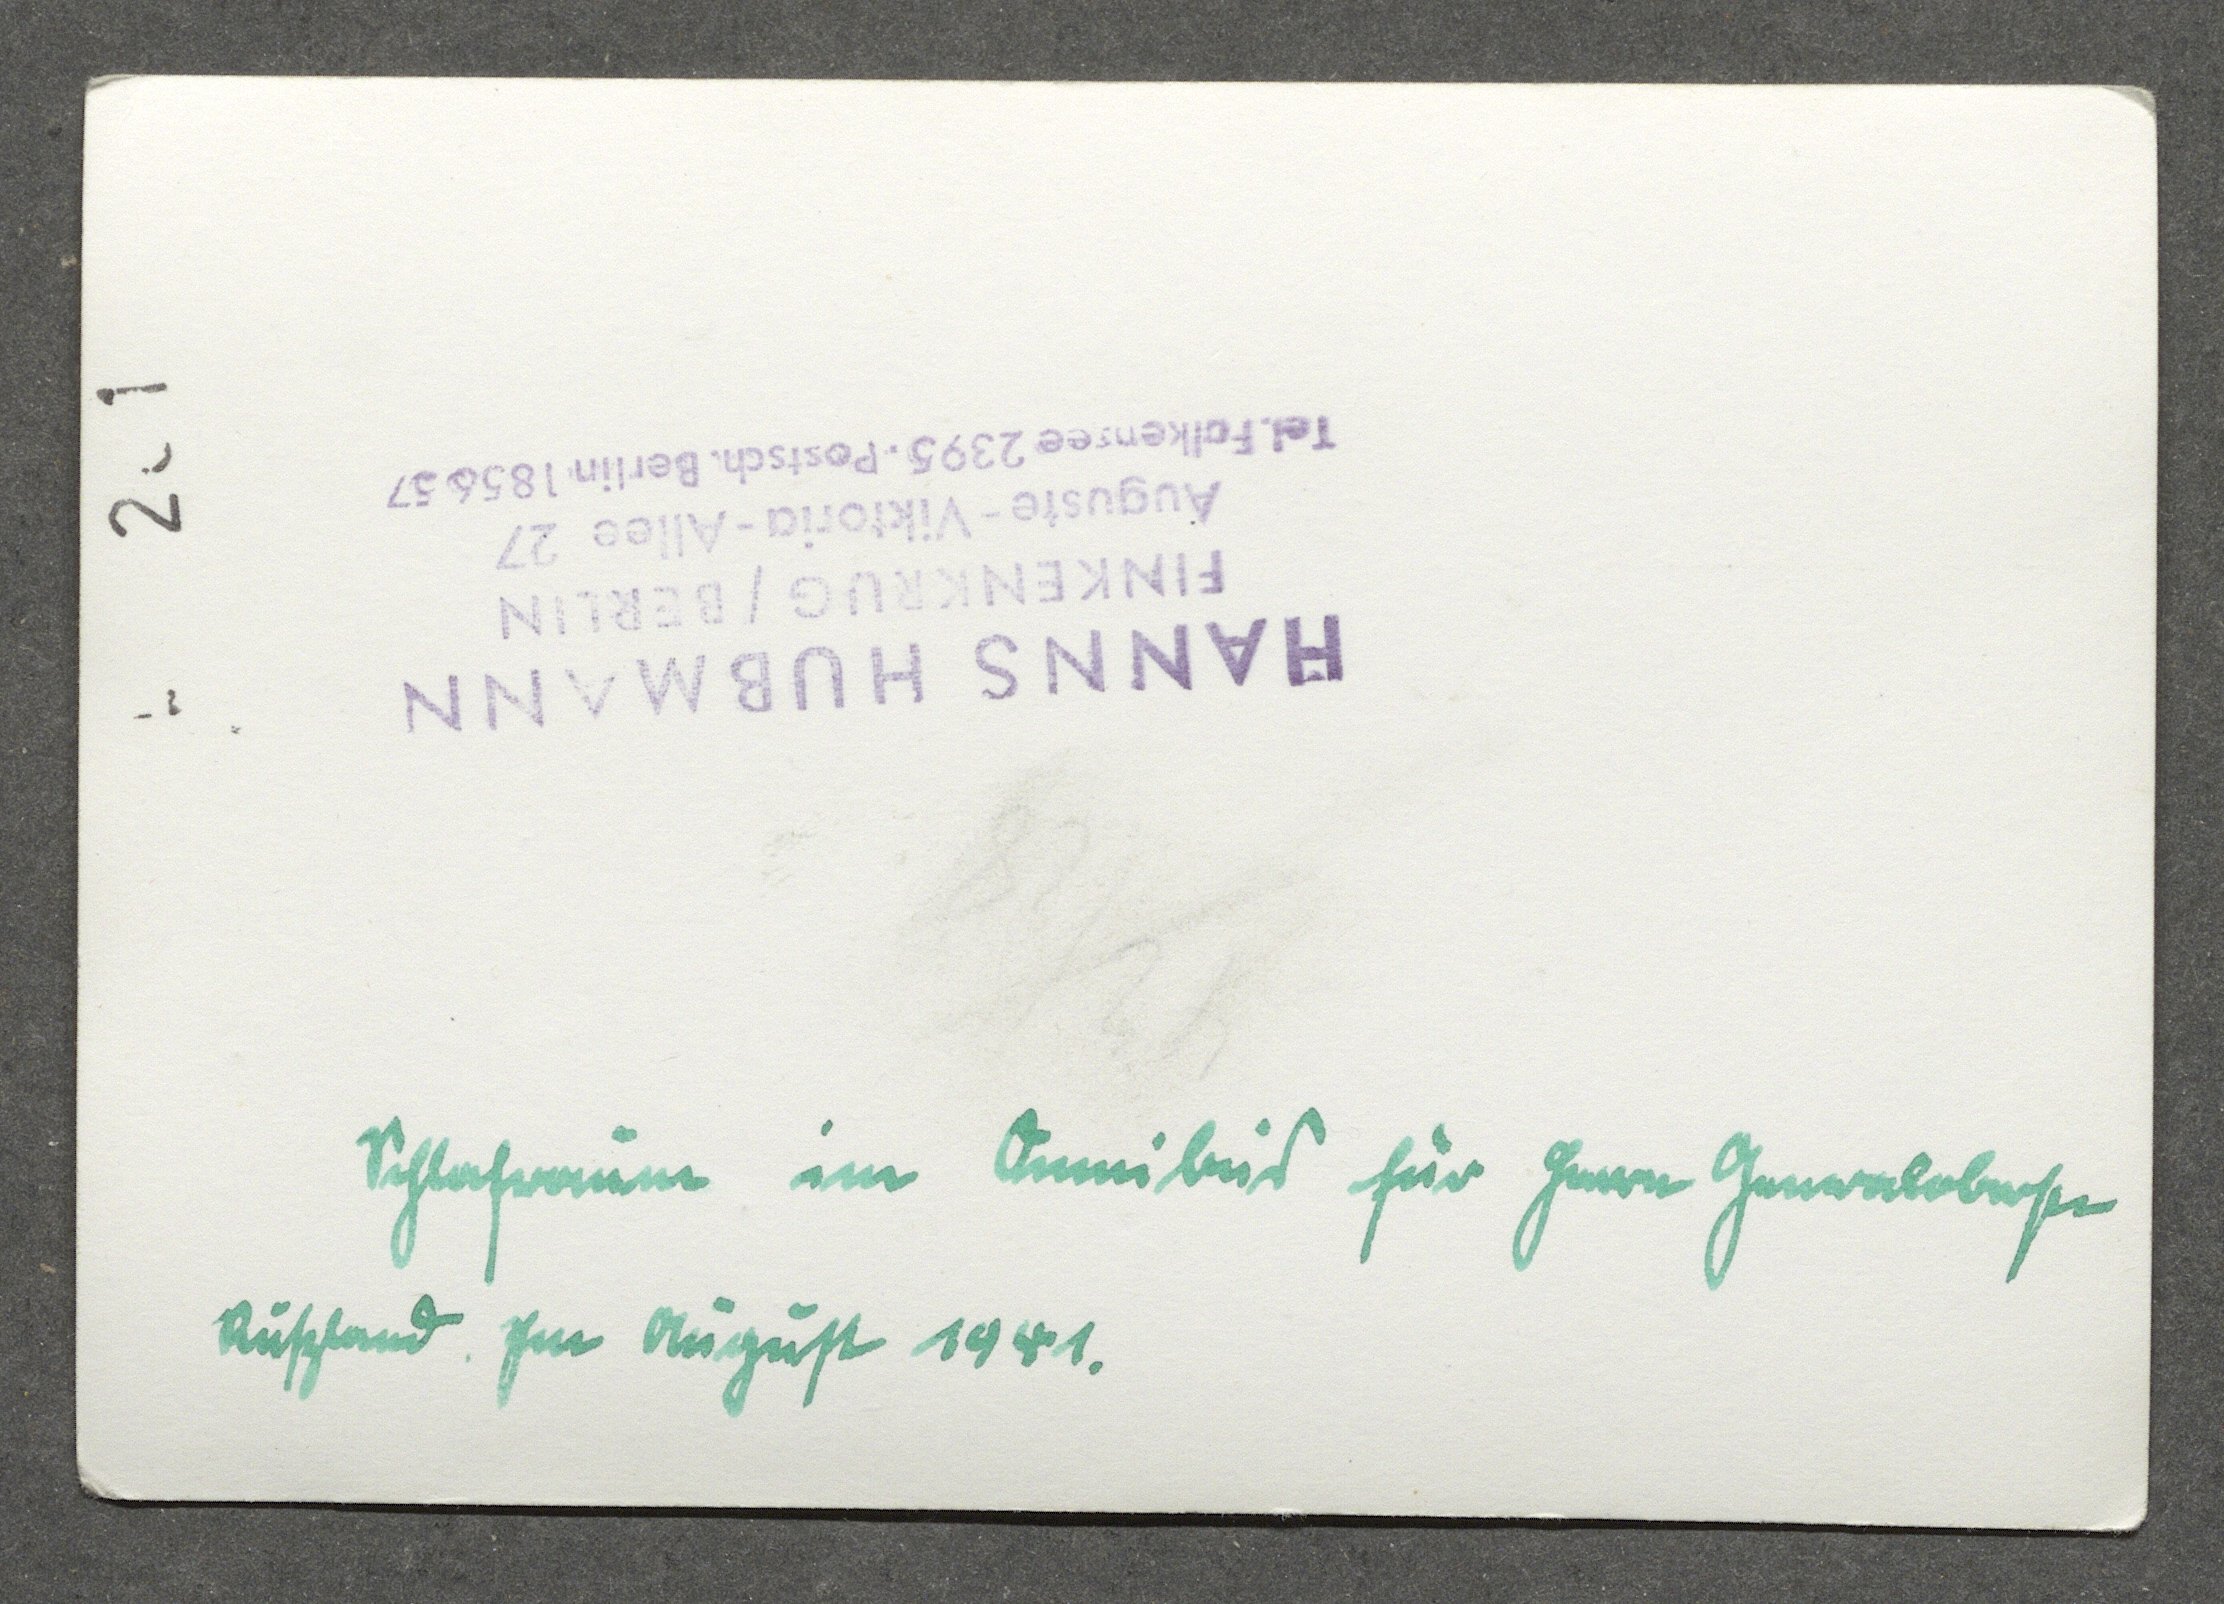 2. 1
HANNS HUBMANN
FINKENKRUG / BERLIN
Auguste-Viktoria-Allee 27
Tel. Falkensee 2395 · Postsch. Berlin 185657
Schlafraum im Omnibus für Herrn Generaloberst
Rußland. Im August 1941.